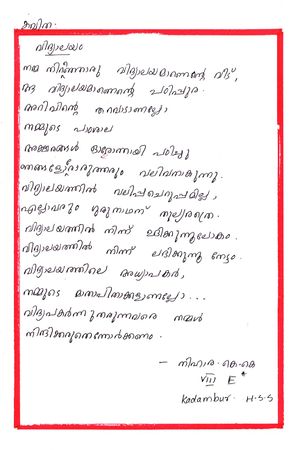 കവിത.
വിദ്യാലയം
നന്മ നിറഞ്ഞൊരു വിദ്യാലയമാണെന്റെ വീട്,
ആ വിദ്യാലയമാണെന്റെ പഠിപ്പുര.
അറിവിന്റെ തറവാടാണല്ലോ
നമ്മുടെ പാഠശാല
അക്ഷരങ്ങൾ ഓരോന്നായി പഠിച്ചു
ഞങ്ങളോരോരുത്തരും വലിവനാകുന്നു.
വിദ്യാലയത്തിൽ വലിപ്പചെറുപ്പമില്ല,
എല്ലാവരും ഗുരുനാഥന് തുല്യരത്രെ.
വിദ്യാലയത്തിൽ നിന്ന് ഉദിക്കുന്നുലോകം.
വിദ്യാലയത്തിൽ നിന്ന് ലഭിക്കുന്നു നേട്ടം.
വിദ്യാലയത്തിലെ അധ്യാപകർ,
നമ്മുടെ മാതാപിതാക്കളാണല്ലോ...
വിദ്യപകർന്നുതരുന്നവരെ നമ്മൾ
നിന്ദിക്കരുതെന്നോർക്കണം.
- നിഹാര.കെ.കെ
VIII E
Kadambur. H.S.S